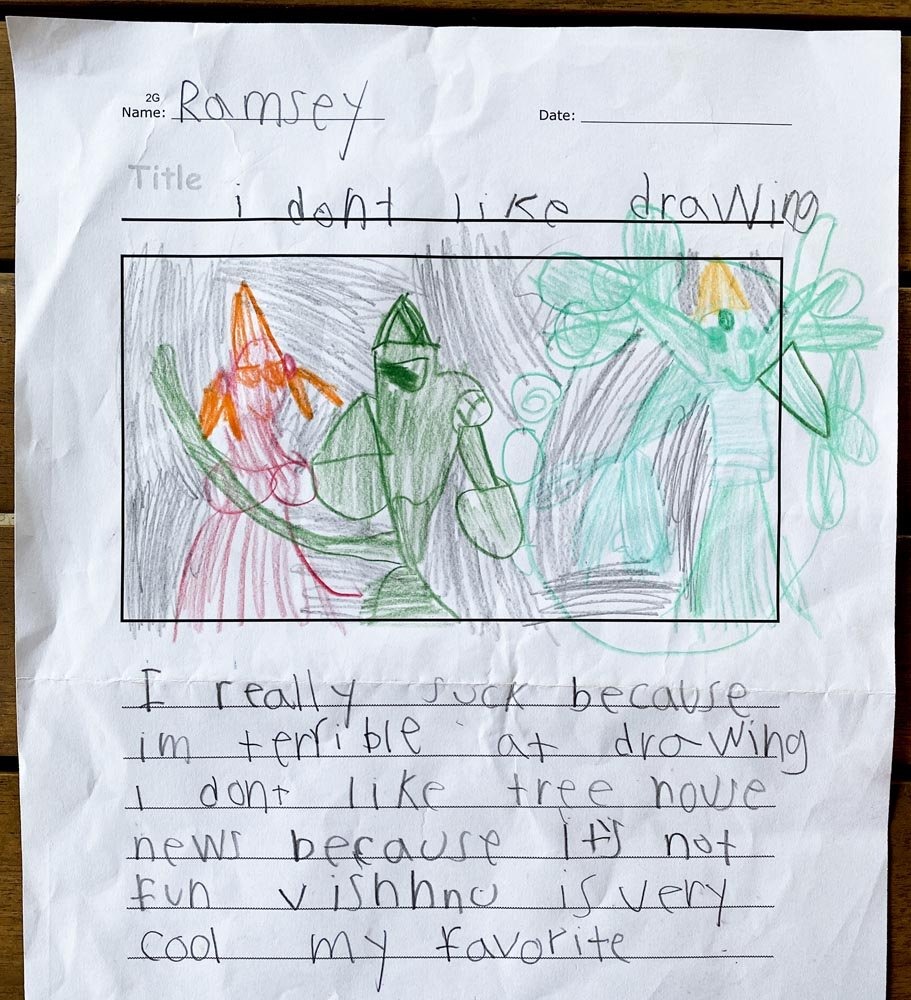 2G
Name: Ramsey
Date:
Title
i dont like drawing
I really suck because
im terrible at drawing
i dont like tree house
news because it's not
fun vishhnu is very
cool my favorite